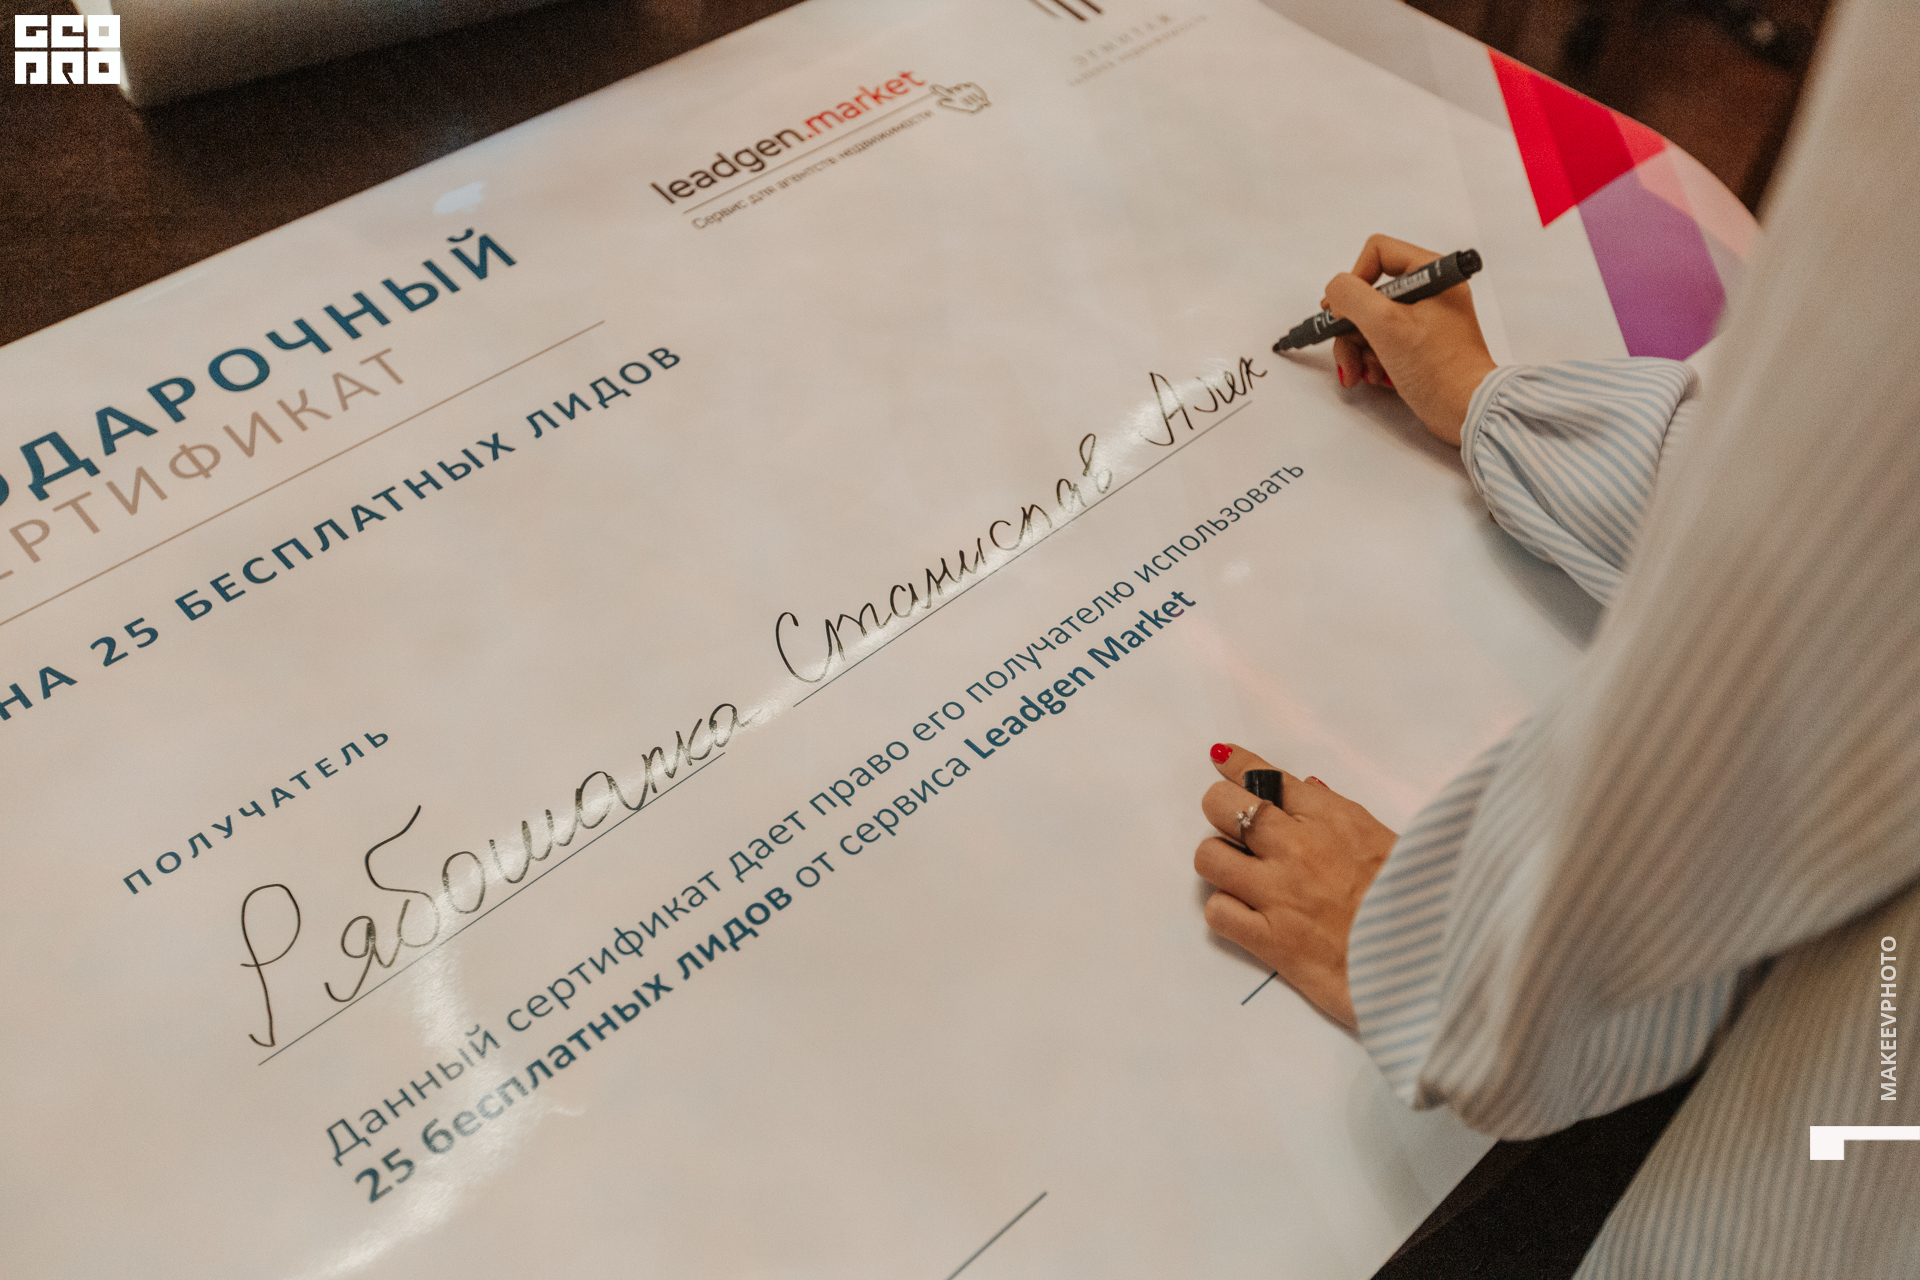 GEO
PRO
leadgen.market
Сервис для агентств недвижимости
ОДАРОЧНЫЙ
ЕРТИФИКАТ
НА 25 БЕСПЛАТНЫХ ЛИДОВ
ПОЛУЧАТЕЛЬ
Рябошапка Станислав Алек
Данный сертификат дает право его получателю использовать
25 бесплатных лидов от сервиса Leadgen Market
MAKEEVPHOTO